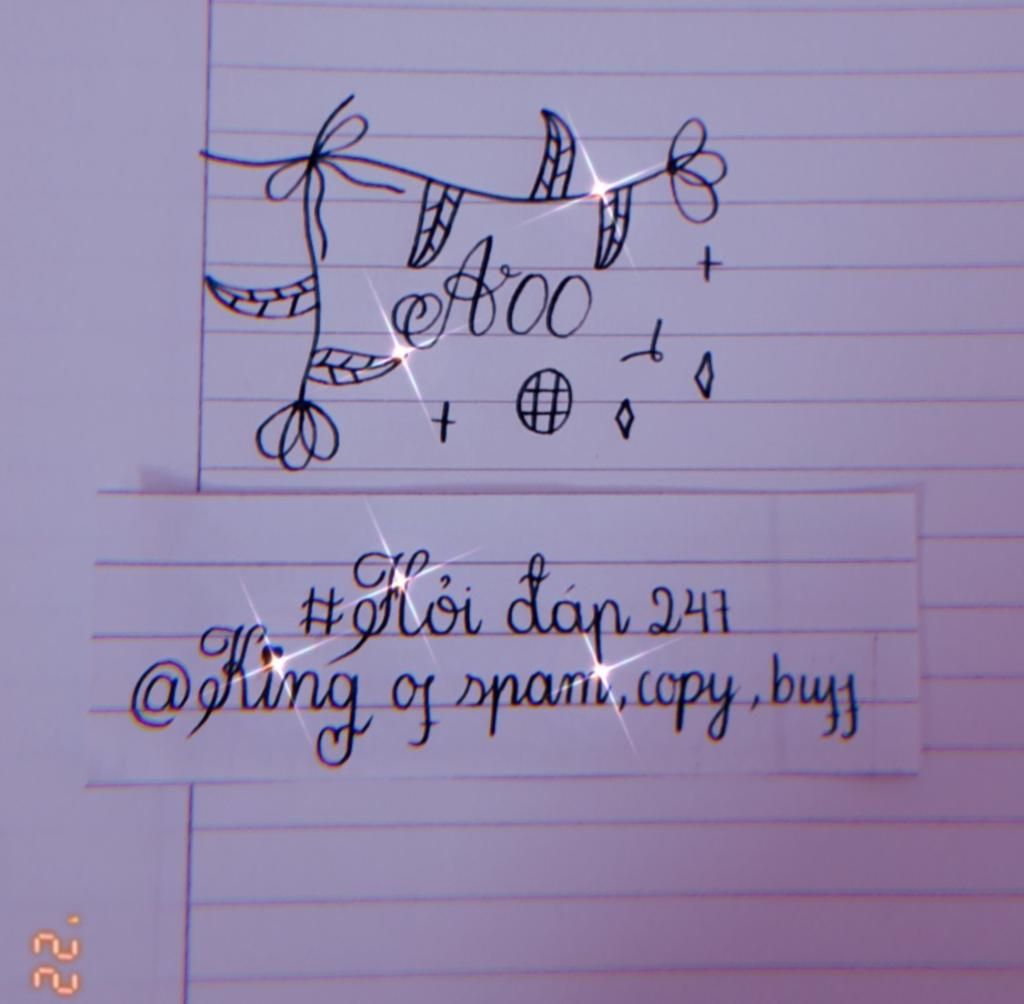 Aoo
#Hỏi đáp 247
@King of spam, copy, buff
'22